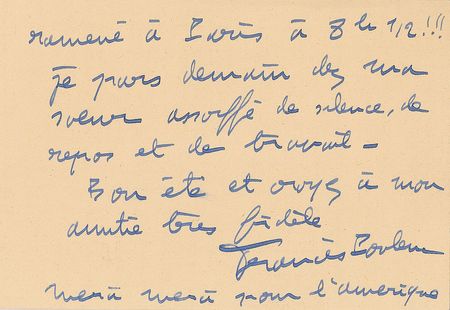 ramené à Paris à 8h 1/2 !!!
je pars demain chez ma
soeur assoiffé de silence, de
repos et de travail –
Bon été et croyez à mon
amitié très fidèle
Francis Poulenc
merci merci pour l'amerique